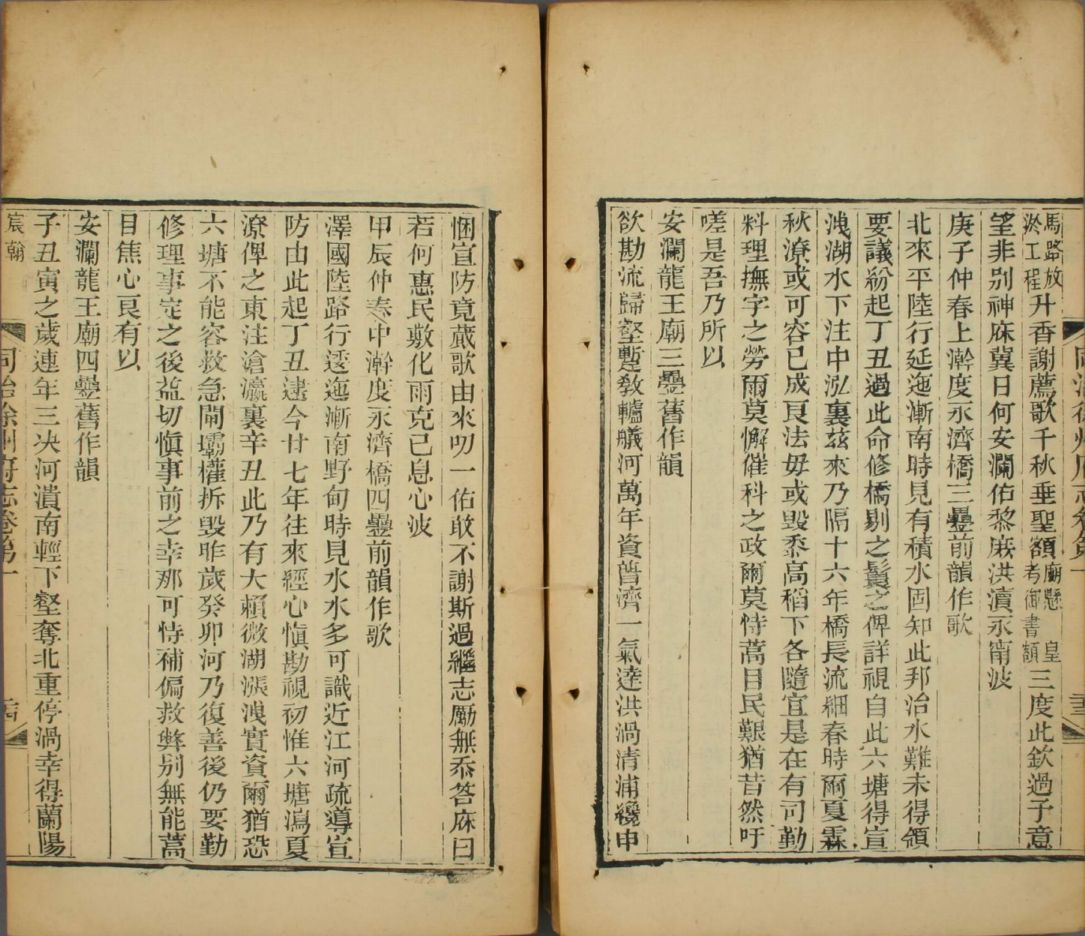 馬路放淤工程升香謝薦歌千秋垂聖額廟懸皇考御書額三度此欽過子意
望非別神庥冀曰何安瀾佑黎庶洪瀆永甯波
庚子仲春上澣度永濟橋三疊前韻作歌
北來平陸行延迤漸南時見有積水固知此邦治水難未得領
要議紛起丁丑過此命修橋剔之鬟之俾詳視自此六塘得宣
洩湖水下注中泓裏茲來乃隔十六年橋長流細春時爾夏霖
秋潦或可容已成良法毋或毀黍高稻下各隨宜是在有司勤
料理撫字之勞爾莫懈催科之政爾莫恃蒿目民艱猶昔然吁
嗟是吾乃所以
安瀾龍王廟三疊舊作韻
欲勘流歸壑蹔敎轤艤河萬年資普濟一氣達洪渦清浦纔申
悃宣防竟蕆歌由來叨一佑敢不謝斯過繼志勵無忝答庥曰
若何惠民敷化雨克己息心波
甲辰仲春中澣度永濟橋四疊前韻作歌
澤國陸路行逶迤漸南野甸時見水水多可識近江河疏導宣
防由此起丁丑逮今廿七年往來經心愼勘視初惟六塘瀉夏
潦俾之東注滄瀛裏辛丑此乃有大賴微湖漲洩實資爾猶恐
六塘不能容救急閘壩權拆毀昨歲癸卯河乃復善後仍要勤
修理事定之後益切愼事前之幸那可恃補偏救弊別無能蒿
目焦心良有以
安瀾龍王廟四疊舊作韻
子丑寅之歲連年三決河潰南輕下壑奪北重停渦幸得蘭陽
宸翰
同治徐州府志卷第一